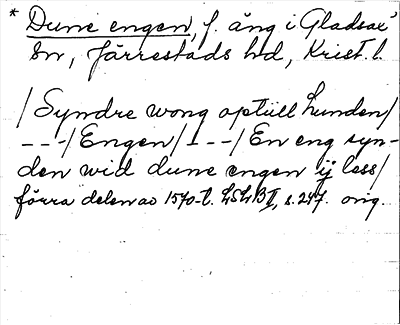 * Dune engen, f. äng i Gladsax'
sn, Järrestads hd, Krist. l.
/Syndre wong optill lunden/
---/Engen/---/En eng syn-
den wid dune engen ij less/
förra delen av 1570-t. LSLB II, s. 247. orig.